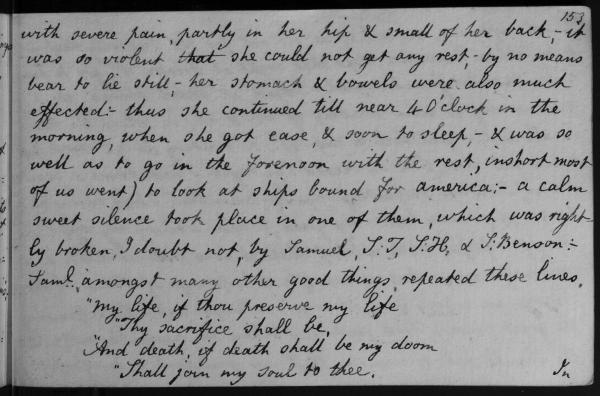 153
with severe pain, partly in her hip & small of her back,- it
was so violent that she could not get any rest,- by no means
bear to lie still,- her stomach & bowels were also much
effected:- thus she continued till near 4 O'clock in the
morning, when she got ease, & soon to sleep,- & was so
well as to go in the forenoon with the rest, (inshort most
of us went) to look at ships bound for america:- a calm
sweet silence took place in one of them, which was right
ly broken, I doubt not, by Samuel, S:T, S:H, & S:Benson:-
Saml. amongst many other good things, repeated these lines,
"My life, if thou preserve my life
"Thy sacrifice shall be,
"And death, if death shall be my doom
"Shall join my soul to thee.
In